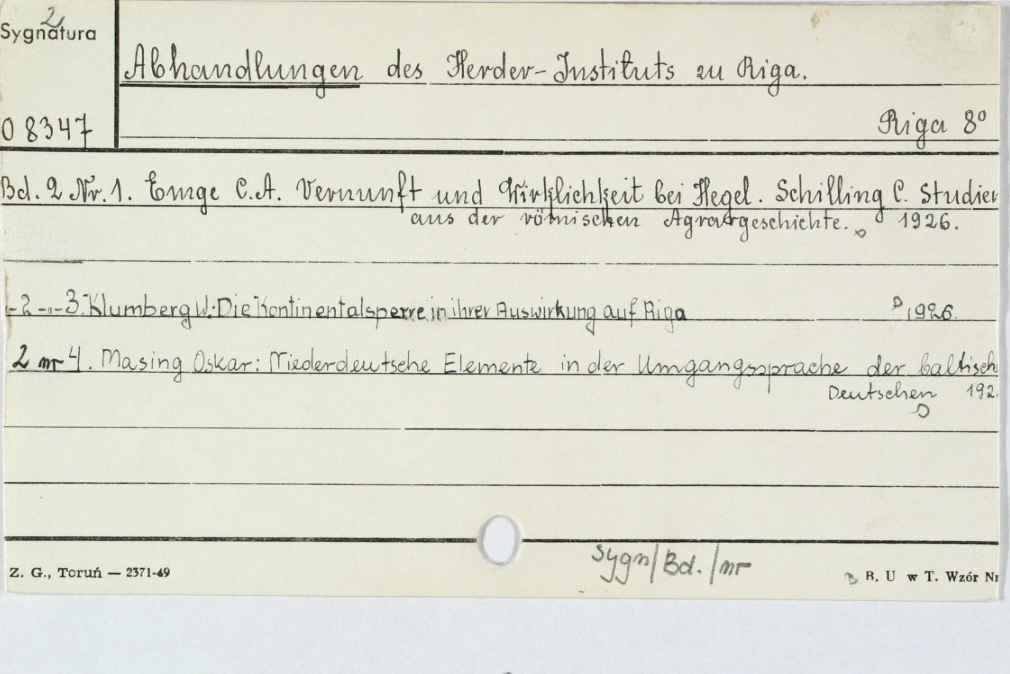 2
Sygnatura
Abhandlungen des Herder-Instituts zu Riga.
O 8347
Riga 8°
Bd. 2 Nr. 1. Emge C.A. Vernunft und Wirklichkeit bei Hegel. Schilling C. Studien
aus der römischen Agrargeschichte. 1926.
-2-"-3. Klumberg W.: Die Kontinentalsperre in ihrer Auswirkung auf Riga 1926.
2 nr 4. Masing Oskar: Niederdeutsche Elemente in der Umgangssprache der baltisch
Deutschen 192
Sygn/Bd./nr
Z. G., Toruń — 2371-49
B. U w T. Wzór Nr